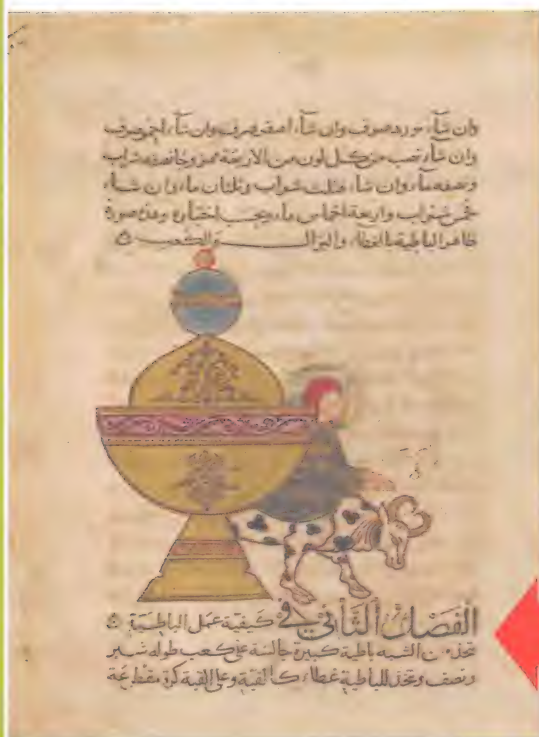 وان شاء مورد صرف وان شاء اصفر صرف وان شاء احمر صرف
وان شاء نصب من كل لون من الاربعة ممزوجا نصفه شراب
ونصفه ماء وان شاء ثلث شراب وثلثان ماء وان شاء
خمس شراب واربعة اخماس ماء وهذه صورة
ظاهر الباطية بالغطاء والبزال والكعب ۵
الفصل الثاني في كيفية عمل الباطية ۵
تتخذ من الشبه باطية كبيرة جالسة على كعب طوله شبر
ونصف وتتخذ للباطية غطاء كالقبة وعلى القبة كرة مقطعة